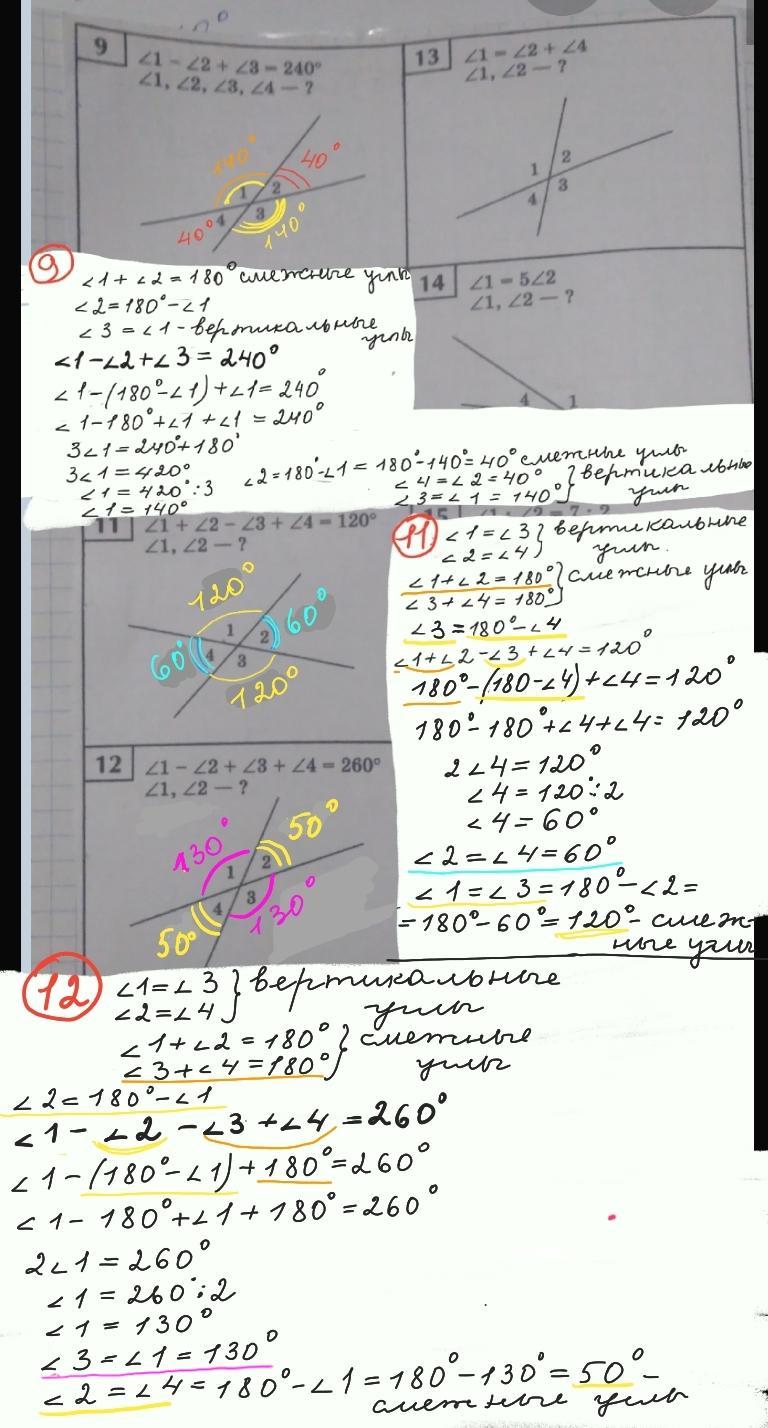 9
∠1 − ∠2 + ∠3 = 240°
∠1, ∠2, ∠3, ∠4 — ?
140°
40°
1
2
3
4
40°
140°
13
∠1 = ∠2 + ∠4
∠1, ∠2 — ?
1
2
3
4
9
∠1 + ∠2 = 180° смежные углы
∠2 = 180° − ∠1
∠3 = ∠1 - вертикальные
углы
∠1 − ∠2 + ∠3 = 240°
∠1 − (180° − ∠1) + ∠1 = 240°
∠1 − 180° + ∠1 + ∠1 = 240°
3∠1 = 240° + 180°
3∠1 = 420°
∠1 = 420° : 3
∠1 = 140°
∠2 = 180° − ∠1 = 180° − 140° = 40° смежные углы
∠4 = ∠2 = 40° } вертикальные
∠3 = ∠1 = 140° } углы
14
∠1 = 5∠2
∠1, ∠2 — ?
4
1
11
∠1 + ∠2 − ∠3 + ∠4 = 120°
∠1, ∠2 — ?
120°
60°
1
2
60°
4
3
120°
11
∠1 = ∠3 } вертикальные
∠2 = ∠4 } углы.
∠1 + ∠2 = 180° } смежные углы
∠3 + ∠4 = 180° }
∠3 = 180° − ∠4
∠1 + ∠2 − ∠3 + ∠4 = 120°
180° − (180 − ∠4) + ∠4 = 120°
180° − 180° + ∠4 + ∠4 = 120°
2∠4 = 120°
∠4 = 120° : 2
∠4 = 60°
∠2 = ∠4 = 60°
∠1 = ∠3 = 180° − ∠2 =
= 180° − 60° = 120° - смеж-
ные углы
12
∠1 − ∠2 + ∠3 + ∠4 = 260°
∠1, ∠2 — ?
130°
50°
1
2
3
4
50°
130°
12
∠1 = ∠3 } вертикальные
∠2 = ∠4 } углы
∠1 + ∠2 = 180° } смежные
∠3 + ∠4 = 180° } углы
∠2 = 180° − ∠1
∠1 − ∠2 − ∠3 + ∠4 = 260°
∠1 − (180° − ∠1) + 180° = 260°
∠1 − 180° + ∠1 + 180° = 260°
2∠1 = 260°
∠1 = 260° : 2
∠1 = 130°
∠3 = ∠1 = 130°
∠2 = ∠4 = 180° − ∠1 = 180° − 130° = 50° -
смежные углы